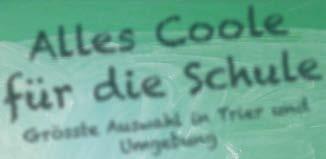 Alles Coole
für die Schule
Grösste Auswahl in Trier und
Umgebung